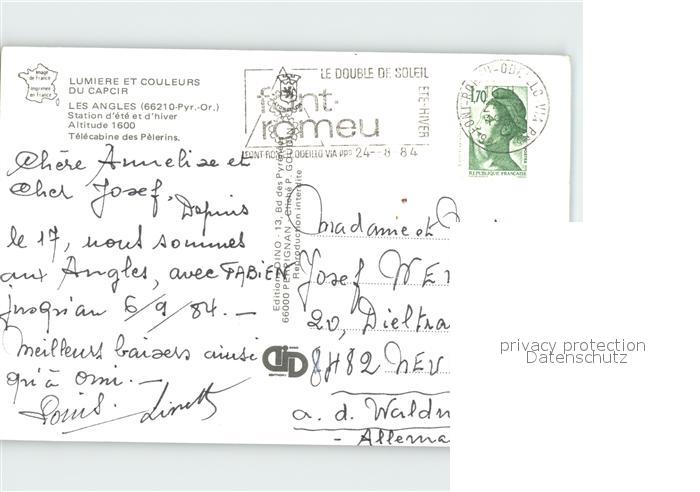 Image
de France
Imprimé
en France
LUMIERE ET COULEURS
DU CAPCIR
LES ANGLES (66210-Pyr.-Or.)
Station d'été et d'hiver
Altitude 1600
Télécabine des Pèlerins.
LE DOUBLE DE SOLEIL
font-
romeu
ETE-HIVER
FONT-ROMEU ODEILLO VIA PPP 24--8 84
1,70
REPUBLIQUE FRANÇAISE
Chère Annelise et
Cher Josef, Depuis
le 17, nous sommes
aux Angles, avec FABIEN
jusqu'au 6/9/84. —
Meilleurs baisers ainsi
qu'à Omi. —
Louis. Linette
Edition DINO - 13, Bd des Pyrénées
66000 PERPIGNAN. Cliché P. GOUDIN
Reproduction interdite
Madame et
Josef WE
20, Dieltra
8482 NEU
a. d. Waldn
- Allema
privacy protection
Datenschutz